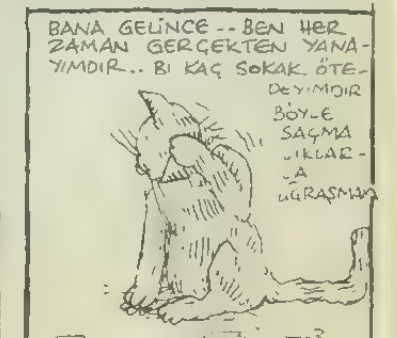 BANA GELİNCE.. BEN HER
ZAMAN GERÇEKTEN YANA-
YIMDIR.. Bİ KAÇ SOKAK ÖTE-
DEYİMDİR
BÖYLE
SAÇMA
LIKLAR-
LA
UĞRAŞMAM